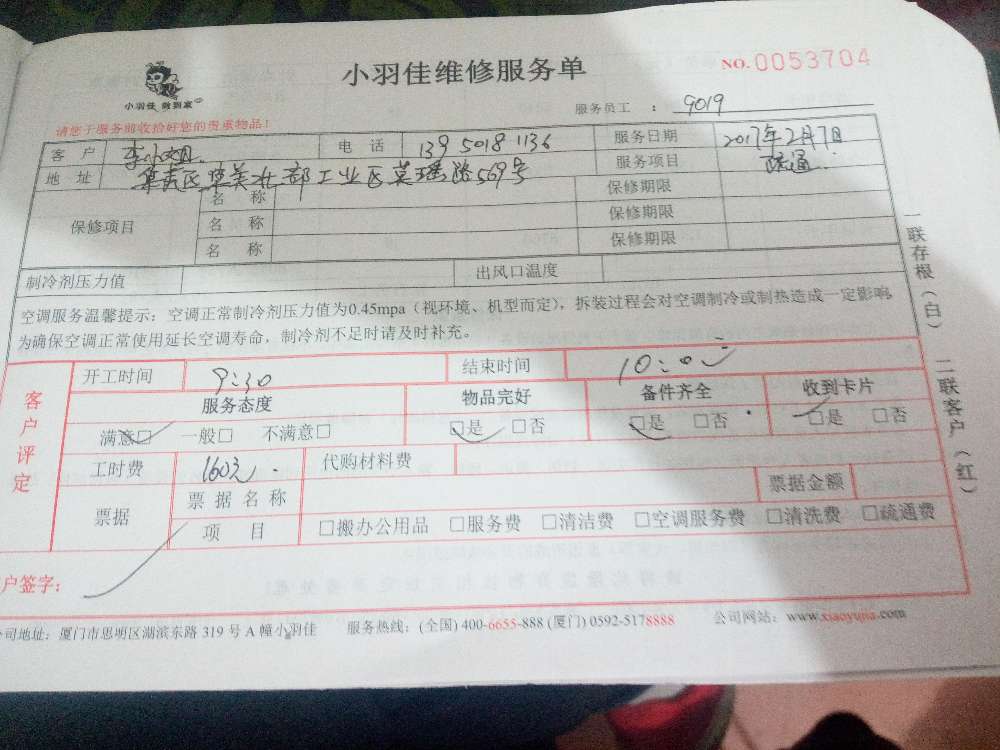 小羽佳维修服务单
NO.0053704
小羽佳 做到家
服务员工 : 9019
请您于服务前收拾好您的贵重物品!
客 户 李小 电 话 139 5018 1136 服务日期 2017年2月7日
地 址 工业区 路569号 服务项目 疏通
保修项目 名 称 保修期限
名 称 保修期限
名 称 保修期限
制冷剂压力值 出风口温度
空调服务温馨提示:空调正常制冷剂压力值为0.45mpa(视环境、机型而定),拆装过程会对空调制冷或制热造成一定影响,
为确保空调正常使用延长空调寿命,制冷剂不足时请及时补充。
客户评定
开工时间 9:30 结束时间 10:00
服务态度 物品完好 备件齐全 收到卡片
满意□ 一般□ 不满意□ □是 □否 □是 □否 □是 □否
工时费 160元 代购材料费
票据 票 据 名 称 票据金额
项 目 □搬办公用品 □服务费 □清洁费 □空调服务费 □清洗费 □疏通费
户签字:
公司地址:厦门市思明区湖滨东路 319 号 A 幢小羽佳 服务热线:(全国) 400-6655-888 (厦门) 0592-5178888 公司网站:www.xiaoyujia.com
一联存根(白) 二联客户(红)